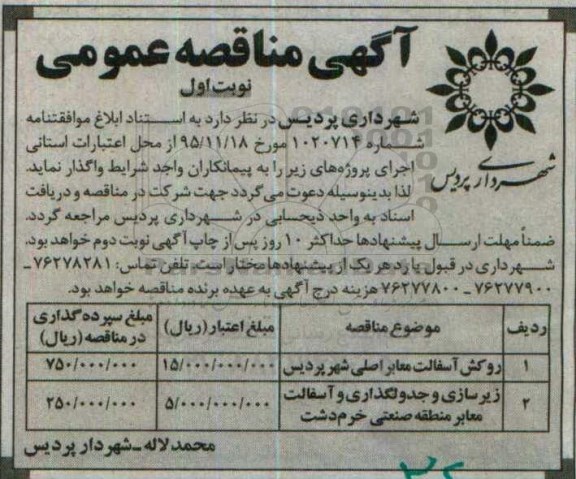 آگهی مناقصه عمومی
نوبت اول
شهرداری پردیس
شهرداری پردیس در نظر دارد به استناد ابلاغ موافقتنامه
شماره ۱۰۲۰۷۱۴ مورخ ۹۵/۱۱/۱۸ از محل اعتبارات استانی
اجرای پروژه‌های زیر را به پیمانکاران واجد شرایط واگذار نماید.
لذا بدینوسیله دعوت می‌گردد جهت شرکت در مناقصه و دریافت
اسناد به واحد ذیحسابی در شهرداری پردیس مراجعه گردد.
ضمناً مهلت ارسال پیشنهادها حداکثر ۱۰ روز پس از چاپ آگهی نوبت دوم خواهد بود.
شهرداری در قبول یا رد هر یک از پیشنهادها مختار است. تلفن تماس: ۷۶۲۷۸۲۸۱ـ
۷۶۲۷۷۹۰۰ ـ ۷۶۲۷۷۸۰۰ هزینه درج آگهی به عهده برنده مناقصه خواهد بود.
ردیف موضوع مناقصه مبلغ اعتبار (ریال) مبلغ سپرده گذاری در مناقصه (ریال)
۱ روکش آسفالت معابر اصلی شهر پردیس ۱۵/۰۰۰/۰۰۰/۰۰۰ ۷۵۰/۰۰۰/۰۰۰
۲ زیرسازی و جدولگذاری و آسفالت معابر منطقه صنعتی خرم‌دشت ۵/۰۰۰/۰۰۰/۰۰۰ ۲۵۰/۰۰۰/۰۰۰
محمد لاله ـ شهردار پردیس